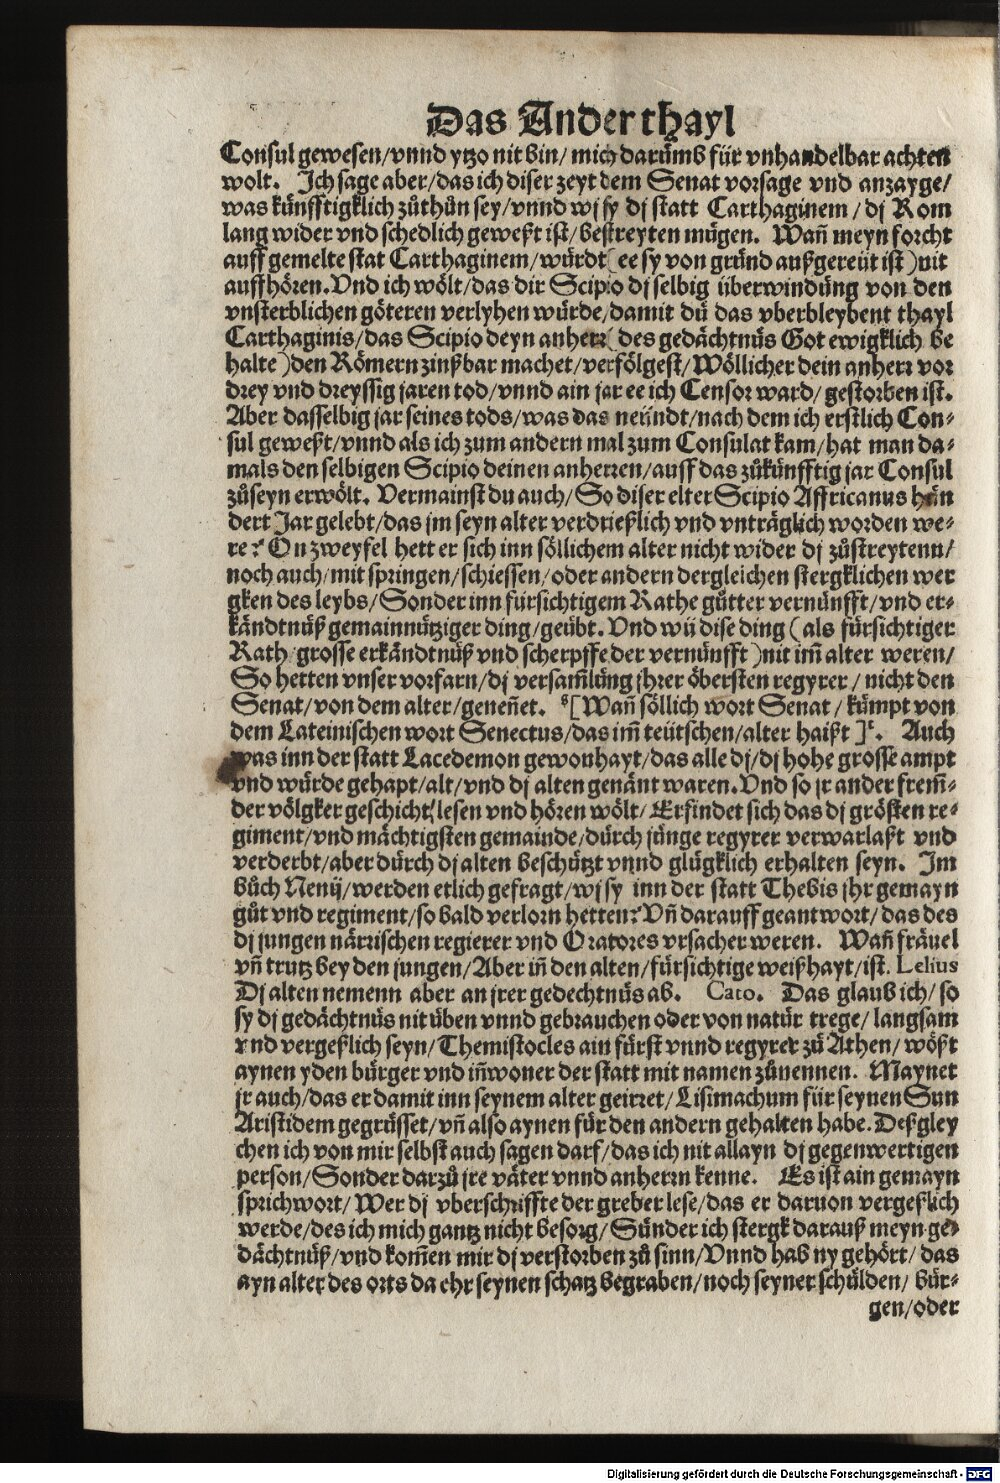 Das Ander thayl
Consul gewesen/vnnd ytzo nit bin/ mich darümb für vnhandelbar achten
wolt. Ich sage aber/das ich diser zeyt dem Senat vorsage vnd anzayge/
was künfftigklich zůthůn sey/vnnd wj sy dj statt Carthaginem/ dj Rom
lang wider vnd schedlich geweßt ist/ bestreyten mügen. Wañ meyn forcht
auff gemelte stat Carthaginem/würdt (ee sy von gründ außgereüt ist) nit
auffhören. Vnd ich wölt/das dir Scipio dj selbig überwindüng von den
vnsterblichen göteren verlyhen würde/damit dü das vberbleybent thayl
Carthaginis/das Scipio deyn anherr (des gedächtnüs Got ewigklich be
halte) den Römern zinßbar machet/verfölgest/Wöllicher dein anherr vor
drey vnd dreyssig jaren tod/vnnd ain jar ee ich Censor ward/ gestorben ist.
Aber dasselbig jar seines tods/was das neündt/nach dem ich erstlich Con-
sul geweßt/vnnd als ich zum andern mal zum Consulat kam/hat man da-
mals den selbigen Scipio deinen anherren/auff das zůkünfftig jar Consul
zůseyn erwölt. Vermainst du auch/So diser elter Scipio Affricanus hün
dert Jar gelebt/das jm seyn alter verdrießlich vnd vnträglich worden we-
re? On zweyfel hett er sich inn söllichem alter nicht wider dj zůstreytenn/
noch auch/mit springen/schiessen/oder andern dergleichen stergklichen wer
gken des leybs/Sonder inn fürsichtigem Rathe gůtter vernünfft/vnd er-
kändtnüß gemainnütziger ding/geübt. Vnd wü dise ding (als fürsichtiger
Rath/grosse erkändtnüß vnd scherpffe der vernünfft) nit im̃ alter weren/
So hetten vnser vorfarn/dj versam̃lüng jhrer öbersten regyrer/ nicht den
Senat/von dem alter/geneñet. [Wañ söllich wort Senat/ kümpt von
dem Lateinischen wort Senectus/das im̃ teütschen/alter haißt]. Auch
was inn der statt Lacedemon gewonhayt/das alle dj/dj hohe grosse ampt
vnd würde gehapt/alt/vnd dj alten genänt waren. Vnd so jr ander frem̃-
der völgker geschicht/lesen vnd hören wölt/ Erfindet sich das dj grösten re-
giment/vnd mächtigsten gemainde/dürch jünge regyrer verwarlaßt vnd
verderbt/aber dürch dj alten beschützt vnnd glügklich erhalten seyn. Im
bůch Nenij/werden etlich gefragt/wj sy inn der statt Thebis jhr gemayn
gůt vnd regiment/so bald verlorn hetten? Vñ darauff geantwort/das des
dj jungen närrischen regierer vnd Oratores vrsacher weren. Wañ fräuel
vñ trutz bey den jungen/Aber iñ den alten/fürsichtige weißhayt/ist. Lelius
Dj alten nemenn aber an jrer gedechtnüs ab. Cato. Das glaub ich/ so
sy dj gedächtnüs nit üben vnnd gebrauchen oder von natür trege/ langsam
vnd vergeßlich seyn/Themistocles ain fürst vnnd regyrer zů Athen/ wößt
aynen yden bürger vnd iñwoner der statt mit namen zůnennen. Maynet
jr auch/das er damit inn seynem alter geirret/Lisimachum für seynen Sun
Aristidem gegrüsset/vñ also aynen für den andern gehalten habe. Deßgley
chen ich von mir selbst auch sagen darf/das ich nit allayn dj gegenwertigen
person/Sonder darzů jre väter vnnd anherrn kenne. Es ist ain gemayn
sprichwort/Wer dj vberschriffte der greber lese/das er daruon vergeßlich
werde/des ich mich gantz nicht besorg/Sünder ich stergk darauß meyn ge-
dächtnüß/vnd kom̃en mir dj verstorben zů sinn/Vnnd hab ny gehört/ das
ayn alter des orts da ehr seynen schatz begraben/noch seyner schülden/ bür-
gen/oder
Digitalisierung gefördert durch die Deutsche Forschungsgemeinschaft - DFG